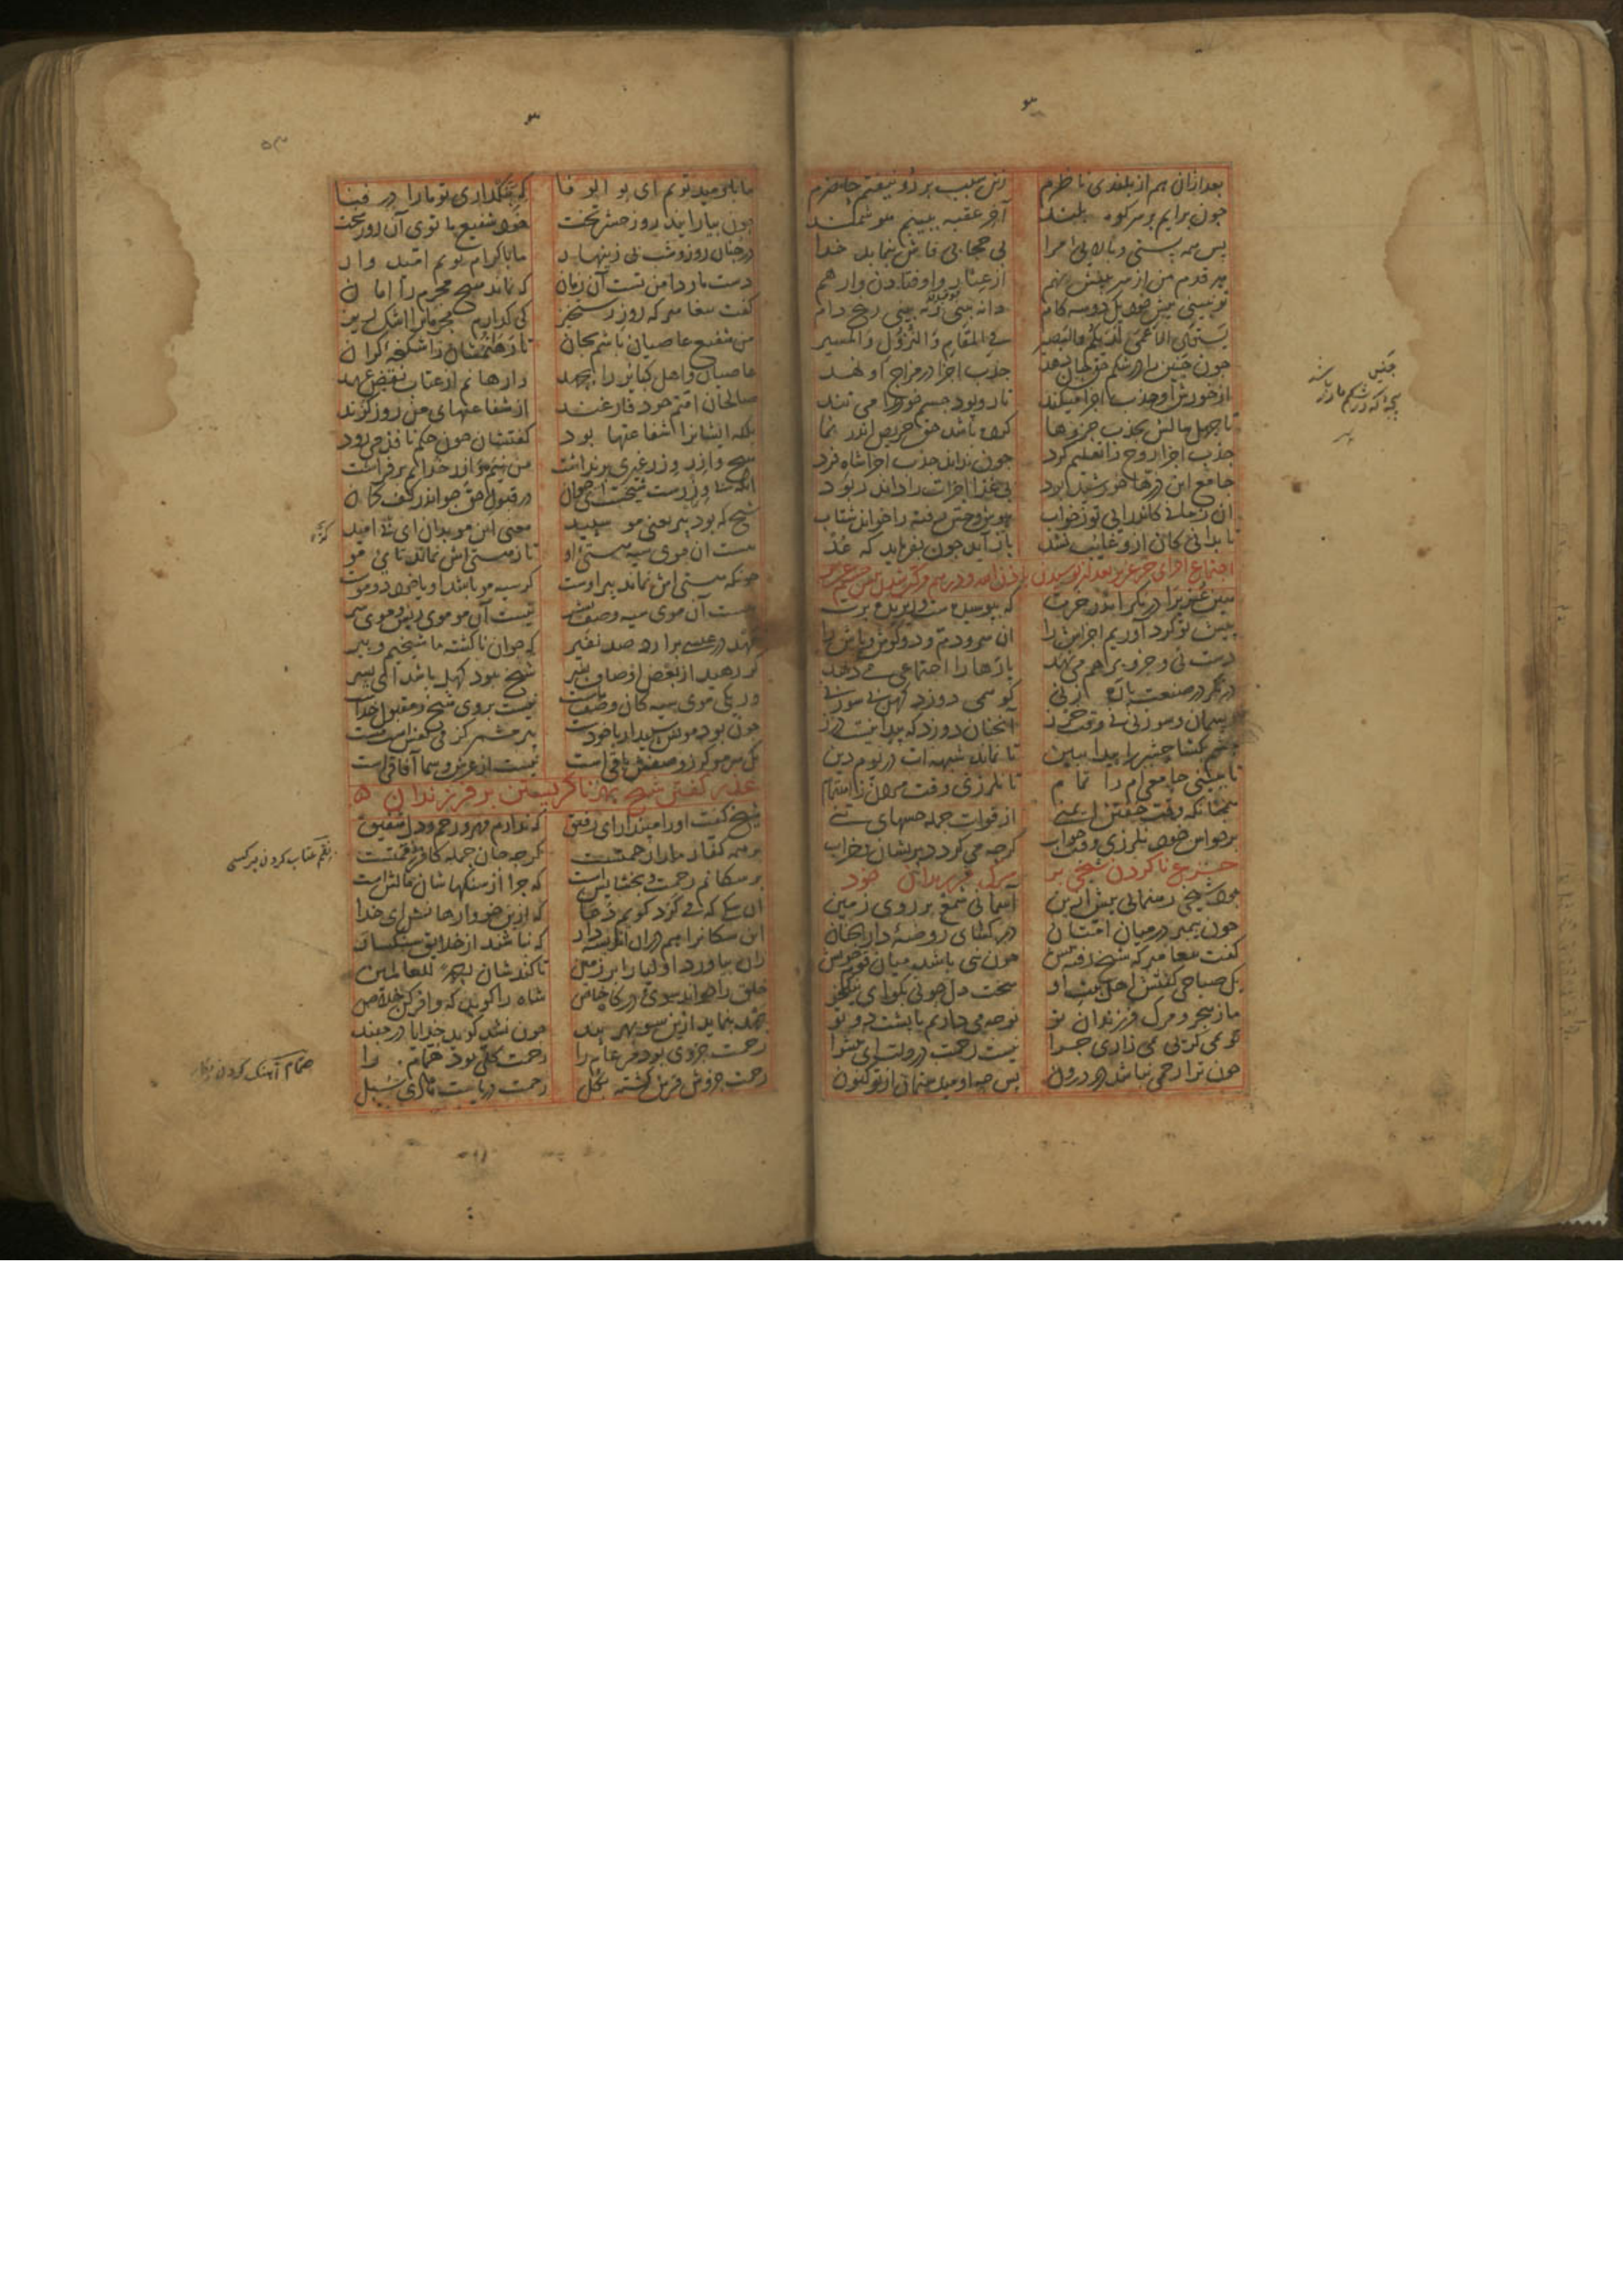 ۳
بعد ازان هم از بلندی ناظرم زین سبب بر رو نیفتم حاضرم
چون برایم بر سر کوه بلند آخر عقبه ببینم هوشمند
پس همه پستی و بالایی مرا بی حجابی فاش بنماید خدا
هر قدم من از سر بینش نهم از عثار و اوفتادن وارهم
تو نبینی پیش خود یک دو سه گام دانه بینی و نه بینی رنج دام
یستوی الاعمی لدیکم والبصیر فی المقام و النزول والمسیر
چون جنین را در شکم حق جان دهد جذب اجزا در مزاج او نهد
از خورش او جذب اجزا میکند تار و پود جسم خود را می تند
تا چهل سالش بجذب جزوها حق حریص
جذب اجزا روح را تعلیم کرد چون نداند جذب اجزا شاه فرد
جامع این ذرها خورشید بود بی غذا اجزات را داند ربود
آن زمانی کاندرایی تو ز خواب هوش و حس رفته را خواند شتاب
تا بدانی کان ازو غایب نشد باز آید چون بفرماید که عد
اجتماع اجزای خر عزیر بعد از پوسیدن
هین عزیرا در نگر اندر خرت که بپوسیده ست و ریزیده برت
پیش تو گرد آوریم اجزاش را آن سر و دم و دو گوش و پاش را
دست نی و جزو بر هم می نهد پارها را اجتماعی می دهد
در نگر در صنعت پاره زنی کو همی دوزد کهن بی سوزنی
ریسمان و سوزنی نی وقت خرز آنچنان دوزد که پیدا نیست درز
چشم بگشا حشر را پیدا ببین تا نماند شبهه ات در یوم دین
تا ببینی جامعی ام را تمام تا نلرزی وقت مردن ز اهتمام
همچنانکه وقت خفتن ایمنی از فوات جمله حسهای تنی
بر حواس خود نلرزی وقت خواب گرچه می گردد پریشان و خراب
جزع ناکردن شیخی بر مرگ فرزندان خود
بود شیخی رهنمائی پیش ازین آسمانی شمع بر روی زمین
چون پیمبر در میان امتان در گشای روضهٔ دار الجنان
گفت پیغامبر که شیخ رفته پیش چون نبی باشد میان قوم خویش
یک صباحی گفتش اهل بیت او سخت دل چونی بگو ای نیکخو
ما ز هجر و مرگ فرزندان تو نوحه می داریم با پشت دوتو
تو نمی گریی نمی زاری چرا نیست رحمت در دلت ای کیا
چون ترا رحمی نباشد در درون پس چه اومید ستمان از تو کنون
جنین
بچه که در شکم مادر باشد
۳
ما باومید توییم ای ابو الوفا که بنگذاری تو ما را در فنا
چون بیارایند روز حشر تخت خود شفیع ما توی آن روز سخت
در چنان روز و شب بی زینهار ما باکرام توییم امیدوار
دست ما و دامن تست آن زمان که نماند هیچ مجرم را امان
گفت پیغامبر که روز رستخیز کی گذارم مجرمان را اشک ریز
من شفیع عاصیان باشم بجان تا رهانمشان ز اشکنجهٔ گران
عاصیان و اهل کبایر را بجهد وارهانم از عتاب نقض عهد
صالحان امتم خود فارغند از شفاعتهای من روز گزند
بلکه ایشانرا شفاعتها بود گفتشان چون حکم نافذ می رود
هیچ وازر وزر غیری برنداشت من نیم وازر خدایم برفراشت
آنکه بی وزرست شیخست ای جوان در قبول حق چو اندر کف کمان
شیخ که بود پیر یعنی مو سپید معنی این مو بدان ای بی امید
هست آن موی سیه هستی او تا ز هستی اش نماند تای مو
چونکه هستی اش نماند پیر اوست گر سیه مو باشد او یا خود دو موست
هست آن موی سیه وصف بشر نیست آن مو موی ریش و موی سر
عیسی در مهد بر آرد صد نفیر که جوان ناگشته ما شیخیم و پیر
گر رهید از بعض اوصاف بشر شیخ نبود کهل باشد ای پسر
ور یکی موی سیه کان وصف ماست نیست بر وی شیخ و مقبول خداست
چون بود مویش سپید ار با خودست
گر سر موئی ز وصفش باقی است نیست از عرش و سما آفاقی است
عذر گفتن شیخ بهر ناگریستن بر فرزندان
شیخ گفت او را مپندار ای رفیق که ندارم مهر و رحم و دل شفیق
بر همه کفار ما را رحمتست گرچه جان جمله کافر نعمتست
بر سگانم رحمت و بخشایش است که چرا از سنگهاشان مالش است
آن سگی که می گزد گویم دعا که ازین خو وارهانش ای خدا
این سگانرا هم دران اندیشه دار که نباشند از خلایق سنگسار
زان بیاورد اولیا را بر زمین تا کندشان رحمة للعالمین
خلق را خواند سوی درگاه خاص شاه را گوید که وافر کن خلاص
جهد بنماید ازین سو بهر پند چون نشد گوید خدایا در مبند
رحمت جزوی بود مر عامه را رحمت کلی بود همام را
رحمت جزوش قرین گشته بکل رحمت دریاست هادی سبل